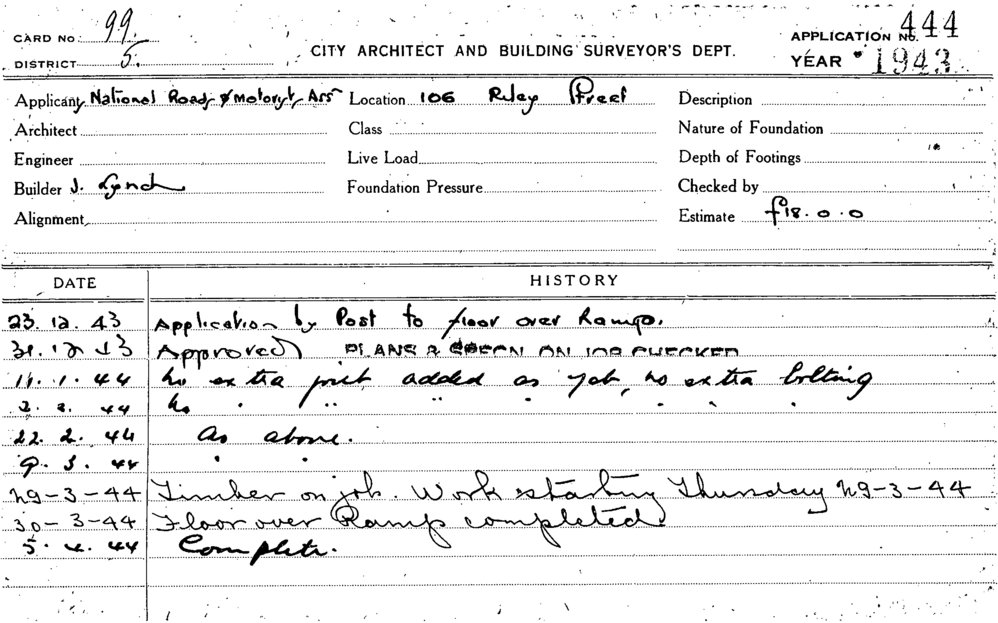 CARD No. 99.
DISTRICT 5.
CITY ARCHITECT AND BUILDING SURVEYOR'S DEPT.
APPLICATION No. 444
YEAR 1943
Applicant National Roads & Motorist Ass
Location 106 Riley Street
Description
Architect
Class
Nature of Foundation
Engineer
Live Load
Depth of Footings
Builder J. Lynch
Foundation Pressure
Checked by
Alignment
Estimate £18.0.0
DATE HISTORY
23.12.43 Application by Post to floor over Ramp.
31.12.43 Approved PLANS & SPECN ON JOB CHECKED
11.1.44 No extra joist added as yet, no extra bolting
2.2.44 No " " " " " " "
22.2.44 As above.
9.3.44 " "
29-3-44 Timber on job. Work starting Thursday 29-3-44
30-3-44 Floor over Ramp completed.
5.4.44 Complete.